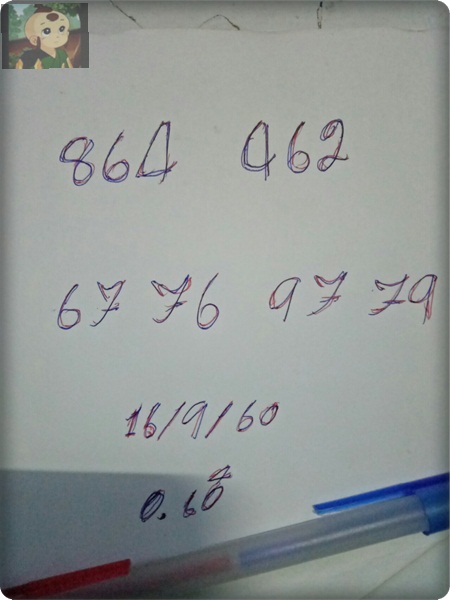 864 462
67 76 97 79
16/9/60